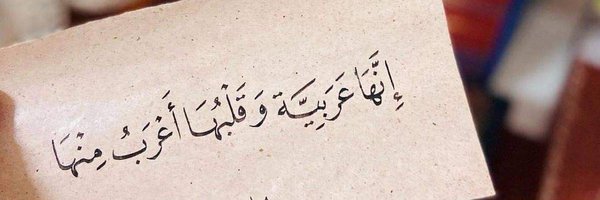 إِنَّهَا عَرَبِيَّة وَ قَلْبُهَا أَعْرَبُ مِنْهَا